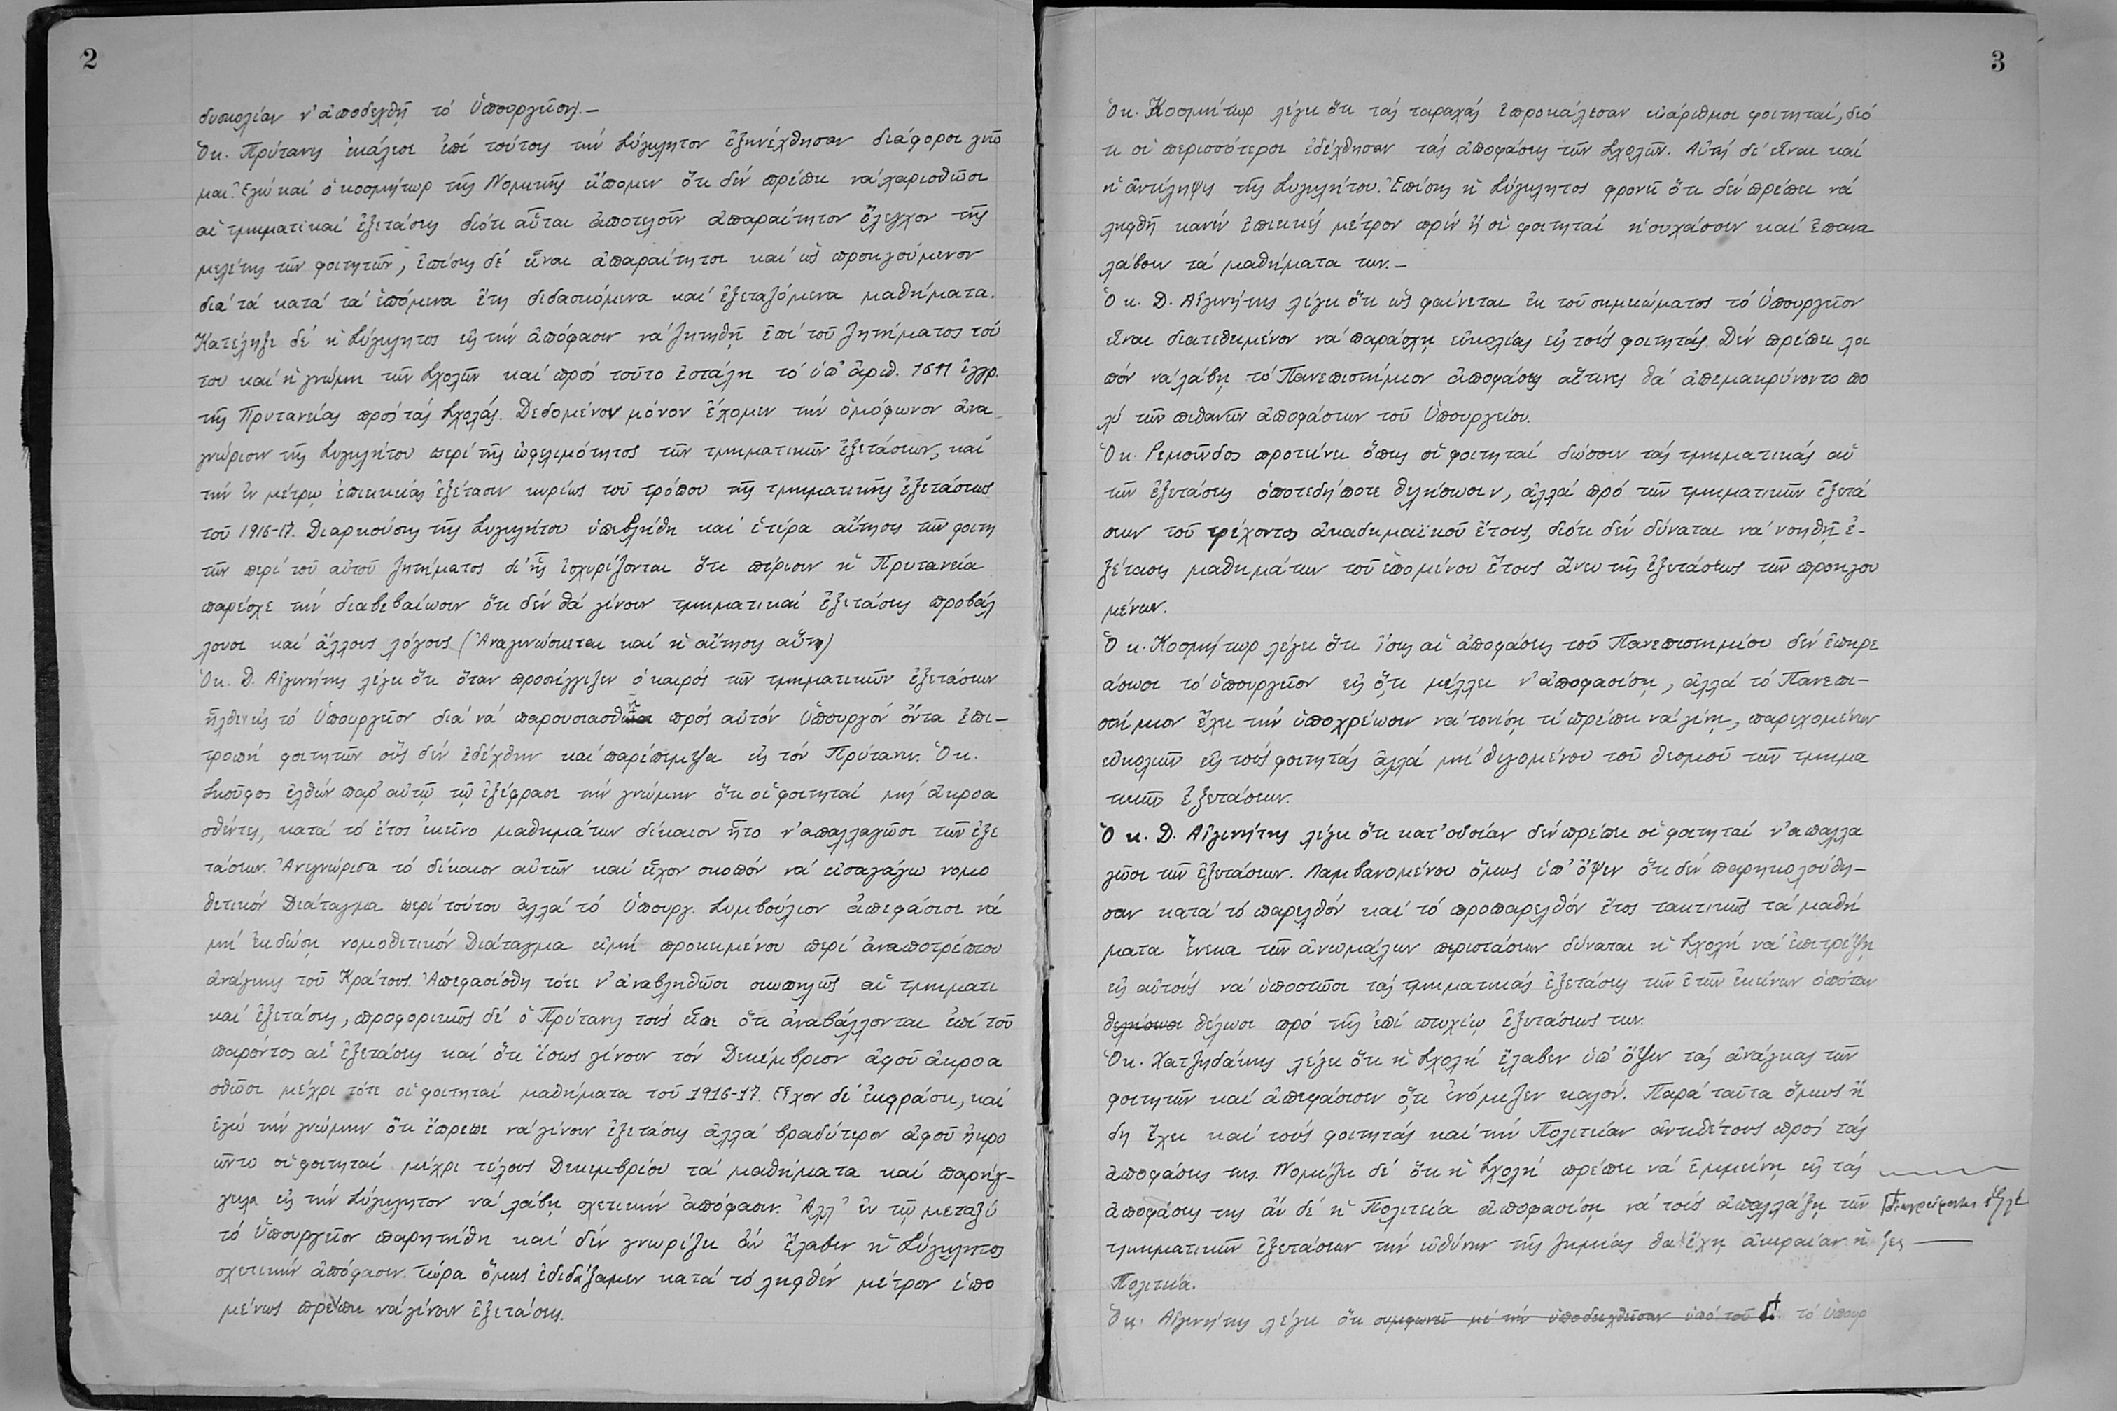 2
δυσκολίαν ν' ἀποδεχθῇ τό Ὑπουργεῖον.—
Ὁ κ. Πρύτανις ἐκάλεσε ἐπί τούτοις τήν Σύγκλητον ἐξηνέχθησαν διάφοροι γνῶ
μαι. Ἐγώ καί ὁ κοσμήτωρ τῆς Νομικῆς εἴπομεν ὅτι δέν πρέπει νά χαρισθῶσι
αἱ τμηματικαί ἐξετάσεις διότι αὗται ἀποτελοῦν ἀπαραίτητον ἔλεγχον τῆς
μελέτης τῶν φοιτητῶν, ἐπίσης δέ εἶναι ἀπαραίτητοι καί ὡς προηγούμενον
διά τά κατά τά ἑπόμενα ἔτη διδασκόμενα καί ἐξεταζόμενα μαθήματα.
Κατέληξε δέ ἡ Σύγκλητος εἰς τήν ἀπόφασιν νά ζητηθῇ ἐπί τοῦ ζητήματος τού
του καί ἡ γνώμη τῶν Σχολῶν καί πρός τοῦτο ἐστάλη τό ὑπ' ἀριθ. 1611 ἔγγρ.
τῆς Πρυτανείας πρός τάς Σχολάς. Δεδομένον μόνον ἔχομεν τήν ὁμόφωνον ἀνα
γνώρισιν τῆς Συγκλήτου περί τῆς ὠφελιμότητος τῶν τμηματικῶν ἐξετάσεων, καί
τήν ἐν μέτρῳ ἐπιεικείας ἐξέτασιν κυρίως τοῦ τρόπου τῆς τμηματικῆς ἐξετάσεως
τοῦ 1916-17. Διαρκούσης τῆς Συγκλήτου ὑπεβλήθη καί ἑτέρα αἴτησις τῶν φοιτη
τῶν περί τοῦ αὐτοῦ ζητήματος δι' ἧς ἰσχυρίζονται ὅτι πέρισυν ἡ Πρυτανεία
παρέσχε τήν διαβεβαίωσιν ὅτι δέν θά γίνουν τμηματικαί ἐξετάσεις προβάλ
λουσι καί ἄλλους λόγους (Ἀναγινώσκεται καί ἡ αἴτησις αὕτη)
Ὁ κ. Δ. Αἰγινήτης λέγει ὅτι ὅταν προσήγγιζεν ὁ καιρός τῶν τμηματικῶν ἐξετάσεων
ἦλθεν εἰς τό Ὑπουργεῖον διά νά παρουσιασθῇ πρός αὐτόν Ὑπουργόν ὄντα ἐπι—
τροπή φοιτητῶν οὕς δέν ἐδέχθην καί παρέπεμψα εἰς τόν Πρύτανιν. Ὁ κ.
Σκοῦφος ἐλθών παρ' αὐτῷ τῷ ἐξέφρασε τήν γνώμην ὅτι οἱ φοιτηταί μή ἀκροα
σθέντες, κατά τό ἔτος ἐκεῖνο μαθημάτων δίκαιον ἦτο ν' ἀπαλλαγῶσι τῶν ἐξε
τάσεων. Ἀνεγνώρισα τό δίκαιον αὐτῶν καί εἶχον σκοπόν νά εἰσαγάγω νομο
θετικόν Διάταγμα περί τούτου ἀλλά τό Ὑπουργ. Συμβούλιον ἀπεφάσισε νά
μή ἐκδώσῃ νομοθετικόν διάταγμα εἰμή προκειμένου περί ἀναποτρέπτου
ἀνάγκης τοῦ Κράτους. Ἀπεφασίσθη τότε ν' ἀναβληθῶσι σιωπηλῶς αἱ τμηματι
καί ἐξετάσεις, προφορικῶς δέ ὁ Πρύτανις τούς εἶπε ὅτι ἀναβάλλονται ἐπί τοῦ
παρόντος αἱ ἐξετάσεις καί ὅτι ἴσως γίνουν τόν Δεκέμβριον ἀφοῦ ἀκροα
σθῶσι μέχρι τότε οἱ φοιτηταί μαθήματα τοῦ 1916-17. Εἶχον δέ ἐκφράσει, καί
ἐγώ τήν γνώμην ὅτι ἔπρεπε νά γίνουν ἐξετάσεις ἀλλά βραδύτερον ἀφοῦ ἠκρο
ῶντο οἱ φοιτηταί μέχρι τέλους Δεκεμβρίου τά μαθήματα καί παρήγ—
γειλα εἰς τήν Σύγκλητον νά λάβῃ σχετικήν ἀπόφασιν. Ἀλλ' ἐν τῷ μεταξύ
τό Ὑπουργεῖον παρητήθη καί δέν γνωρίζει ἄν ἔλαβεν ἡ Σύγκλητος
σχετικήν ἀπόφασιν. Τώρα ὅμως ἐδιδάξαμεν κατά τό ληφθέν μέτρον ἑπο
μένως πρέπει νά γίνουν ἐξετάσεις.
3
Ὁ κ. Κοσμήτωρ λέγει ὅτι τάς ταραχάς ἐπροκάλεσαν εὐάριθμοι φοιτηταί, διό
τι οἱ περισσότεροι ἐδέχθησαν τάς ἀποφάσεις τῶν Σχολῶν. Αὐτή δέ εἶναι καί
ἡ ἀντίληψις τῆς Συγκλήτου. Ἐπίσης ἡ Σύγκλητος φρονεῖ ὅτι δέν πρέπει νά
ληφθῇ κανέν ἐπιεικές μέτρον πρίν ἤ οἱ φοιτηταί ἡσυχάσουν καί ἐπανα
λάβουν τά μαθήματά των.—
Ὁ κ. Δ. Αἰγινήτης λέγει ὅτι ὡς φαίνεται ἐκ τοῦ σημειώματος τό Ὑπουργεῖον
εἶναι διατεθειμένον νά παράσχῃ εὐκολίας εἰς τούς φοιτητάς. Δέν πρέπει λοι
πόν νά λάβῃ τό Πανεπιστήμιον ἀποφάσεις αἵτινες θά ἀπεμακρύνοντο πο
λύ τῶν πιθανῶν ἀποφάσεων τοῦ Ὑπουργείου.
Ὁ κ. Ρεμοῦνδος προτείνει ὅπως οἱ φοιτηταί δώσουν τάς τμηματικάς αὐ
τῶν ἐξετάσεις ὁποτεδήποτε θελήσωσιν, ἀλλά πρό τῶν τμηματικῶν ἐξετά
σεων τοῦ τρέχοντος ἀκαδημαϊκοῦ ἔτους, διότι δέν δύναται νά νοηθῇ ἐ-
ξέτασις μαθημάτων τοῦ ἑπομένου ἔτους ἄνευ τῆς ἐξετάσεως τῶν προηγου
μένων.
Ὁ κ. Κοσμήτωρ λέγει ὅτι ἴσως αἱ ἀποφάσεις τοῦ Πανεπιστημίου δέν ἐπηρε
άσωσι τό ὑπουργεῖον εἰς ὅ,τι μέλλει ν' ἀποφασίσῃ, ἀλλά τό Πανεπι—
στήμιον ἔχει τήν ὑποχρέωσιν νά τονίσῃ τί πρέπει νά γίνῃ, παρεχομένων
εὐκολιῶν εἰς τούς φοιτητάς ἀλλά μή θιγομένου τοῦ θεσμοῦ τῶν τμημα
τικῶν ἐξετάσεων.
Ὁ κ. Δ. Αἰγινήτης λέγει ὅτι κατ' οὐσίαν δέν πρέπει οἱ φοιτηταί ν' ἀπαλλα
γῶσι τῶν ἐξετάσεων. Λαμβανομένου ὅμως ὑπ' ὄψιν ὅτι δέν παρηκολούθη—
σαν κατά τό παρελθόν καί τό προπαρελθόν ἔτος τακτικῶς τά μαθή
ματα ἕνεκα τῶν ἀνωμάλων περιστάσεων δύναται ἡ Σχολή νά ἐπιτρέψῃ
εἰς αὐτούς νά ὑποστῶσι τάς τμηματικάς ἐξετάσεις τῶν ἐτῶν ἐκείνων ὁπόταν
θελήσωσι θέλωσι πρό τῆς ἐπί πτυχίῳ ἐξετάσεώς των.
Ὁ κ. Χατζηδάκης λέγει ὅτι ἡ Σχολή ἔλαβεν ὑπ' ὄψιν τάς ἀνάγκας τῶν
φοιτητῶν καί ἀπεφάσισεν ὅ,τι ἐνόμιζεν καλόν. Παρά ταῦτα ὅμως ἤ
δη ἔχει καί τούς φοιτητάς καί τήν Πολιτείαν ἀντιθέτους πρός τάς
ἀποφάσεις της. Νομίζει δέ ὅτι ἡ Σχολή πρέπει νά ἐμμείνῃ εἰς τάς
ἀποφάσεις της ἄν δέ ἡ Πολιτεία ἀποφασίσῃ νά τούς ἀπαλλάξῃ τῶν
τμηματικῶν ἐξετάσεων τήν εὐθύνην τῆς ζημίας θά ἔχῃ ἀκεραίαν ἡ
Πολιτεία.
Ὁ κ. Αἰγινήτης λέγει ὅτι συμφωνεῖ μέ τήν ὑποδειχθεῖσαν ὑπό τοῦ τό ὑπουρ